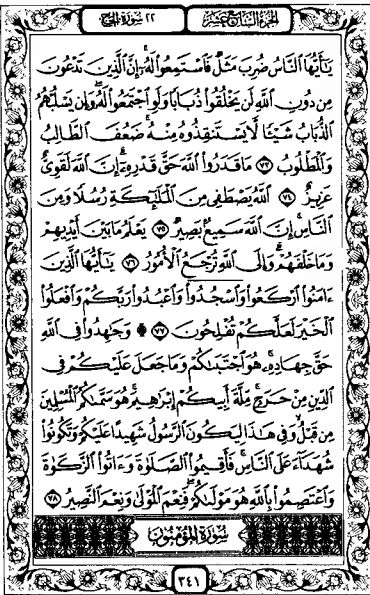 الجزء السابع عشر
٢٢ سورة الحج
يَٰٓأَيُّهَا ٱلنَّاسُ ضُرِبَ مَثَلٌ فَٱسۡتَمِعُواْ لَهُۥٓۚ إِنَّ ٱلَّذِينَ تَدۡعُونَ
مِن دُونِ ٱللَّهِ لَن يَخۡلُقُواْ ذُبَابًا وَلَوِ ٱجۡتَمَعُواْ لَهُۥۖ وَإِن يَسۡلُبۡهُمُ
ٱلذُّبَابُ شَيۡـًٔا لَّا يَسۡتَنقِذُوهُ مِنۡهُۚ ضَعُفَ ٱلطَّالِبُ
وَٱلۡمَطۡلُوبُ ٧٣ مَا قَدَرُواْ ٱللَّهَ حَقَّ قَدۡرِهِۦٓۚ إِنَّ ٱللَّهَ لَقَوِيٌّ
عَزِيزٌ ٧٤ ٱللَّهُ يَصۡطَفِي مِنَ ٱلۡمَلَٰٓئِكَةِ رُسُلًا وَمِنَ
ٱلنَّاسِۚ إِنَّ ٱللَّهَ سَمِيعُۢ بَصِيرٌ ٧٥ يَعۡلَمُ مَا بَيۡنَ أَيۡدِيهِمۡ
وَمَا خَلۡفَهُمۡۚ وَإِلَى ٱللَّهِ تُرۡجَعُ ٱلۡأُمُورُ ٧٦ يَٰٓأَيُّهَا ٱلَّذِينَ
ءَامَنُواْ ٱرۡكَعُواْ وَٱسۡجُدُواْ وَٱعۡبُدُواْ رَبَّكُمۡ وَٱفۡعَلُواْ
ٱلۡخَيۡرَ لَعَلَّكُمۡ تُفۡلِحُونَ ٧٧ وَجَٰهِدُواْ فِي ٱللَّهِ
حَقَّ جِهَادِهِۦۚ هُوَ ٱجۡتَبَىٰكُمۡ وَمَا جَعَلَ عَلَيۡكُمۡ فِي
ٱلدِّينِ مِنۡ حَرَجٍۚ مِّلَّةَ أَبِيكُمۡ إِبۡرَٰهِيمَۚ هُوَ سَمَّىٰكُمُ ٱلۡمُسۡلِمِينَ
مِن قَبۡلُ وَفِي هَٰذَا لِيَكُونَ ٱلرَّسُولُ شَهِيدًا عَلَيۡكُمۡ وَتَكُونُواْ
شُهَدَآءَ عَلَى ٱلنَّاسِۚ فَأَقِيمُواْ ٱلصَّلَوٰةَ وَءَاتُواْ ٱلزَّكَوٰةَ
وَٱعۡتَصِمُواْ بِٱللَّهِ هُوَ مَوۡلَىٰكُمۡۖ فَنِعۡمَ ٱلۡمَوۡلَىٰ وَنِعۡمَ ٱلنَّصِيرُ ٧٨
سُورَةُ المُؤۡمِنُونَ
٣٤١